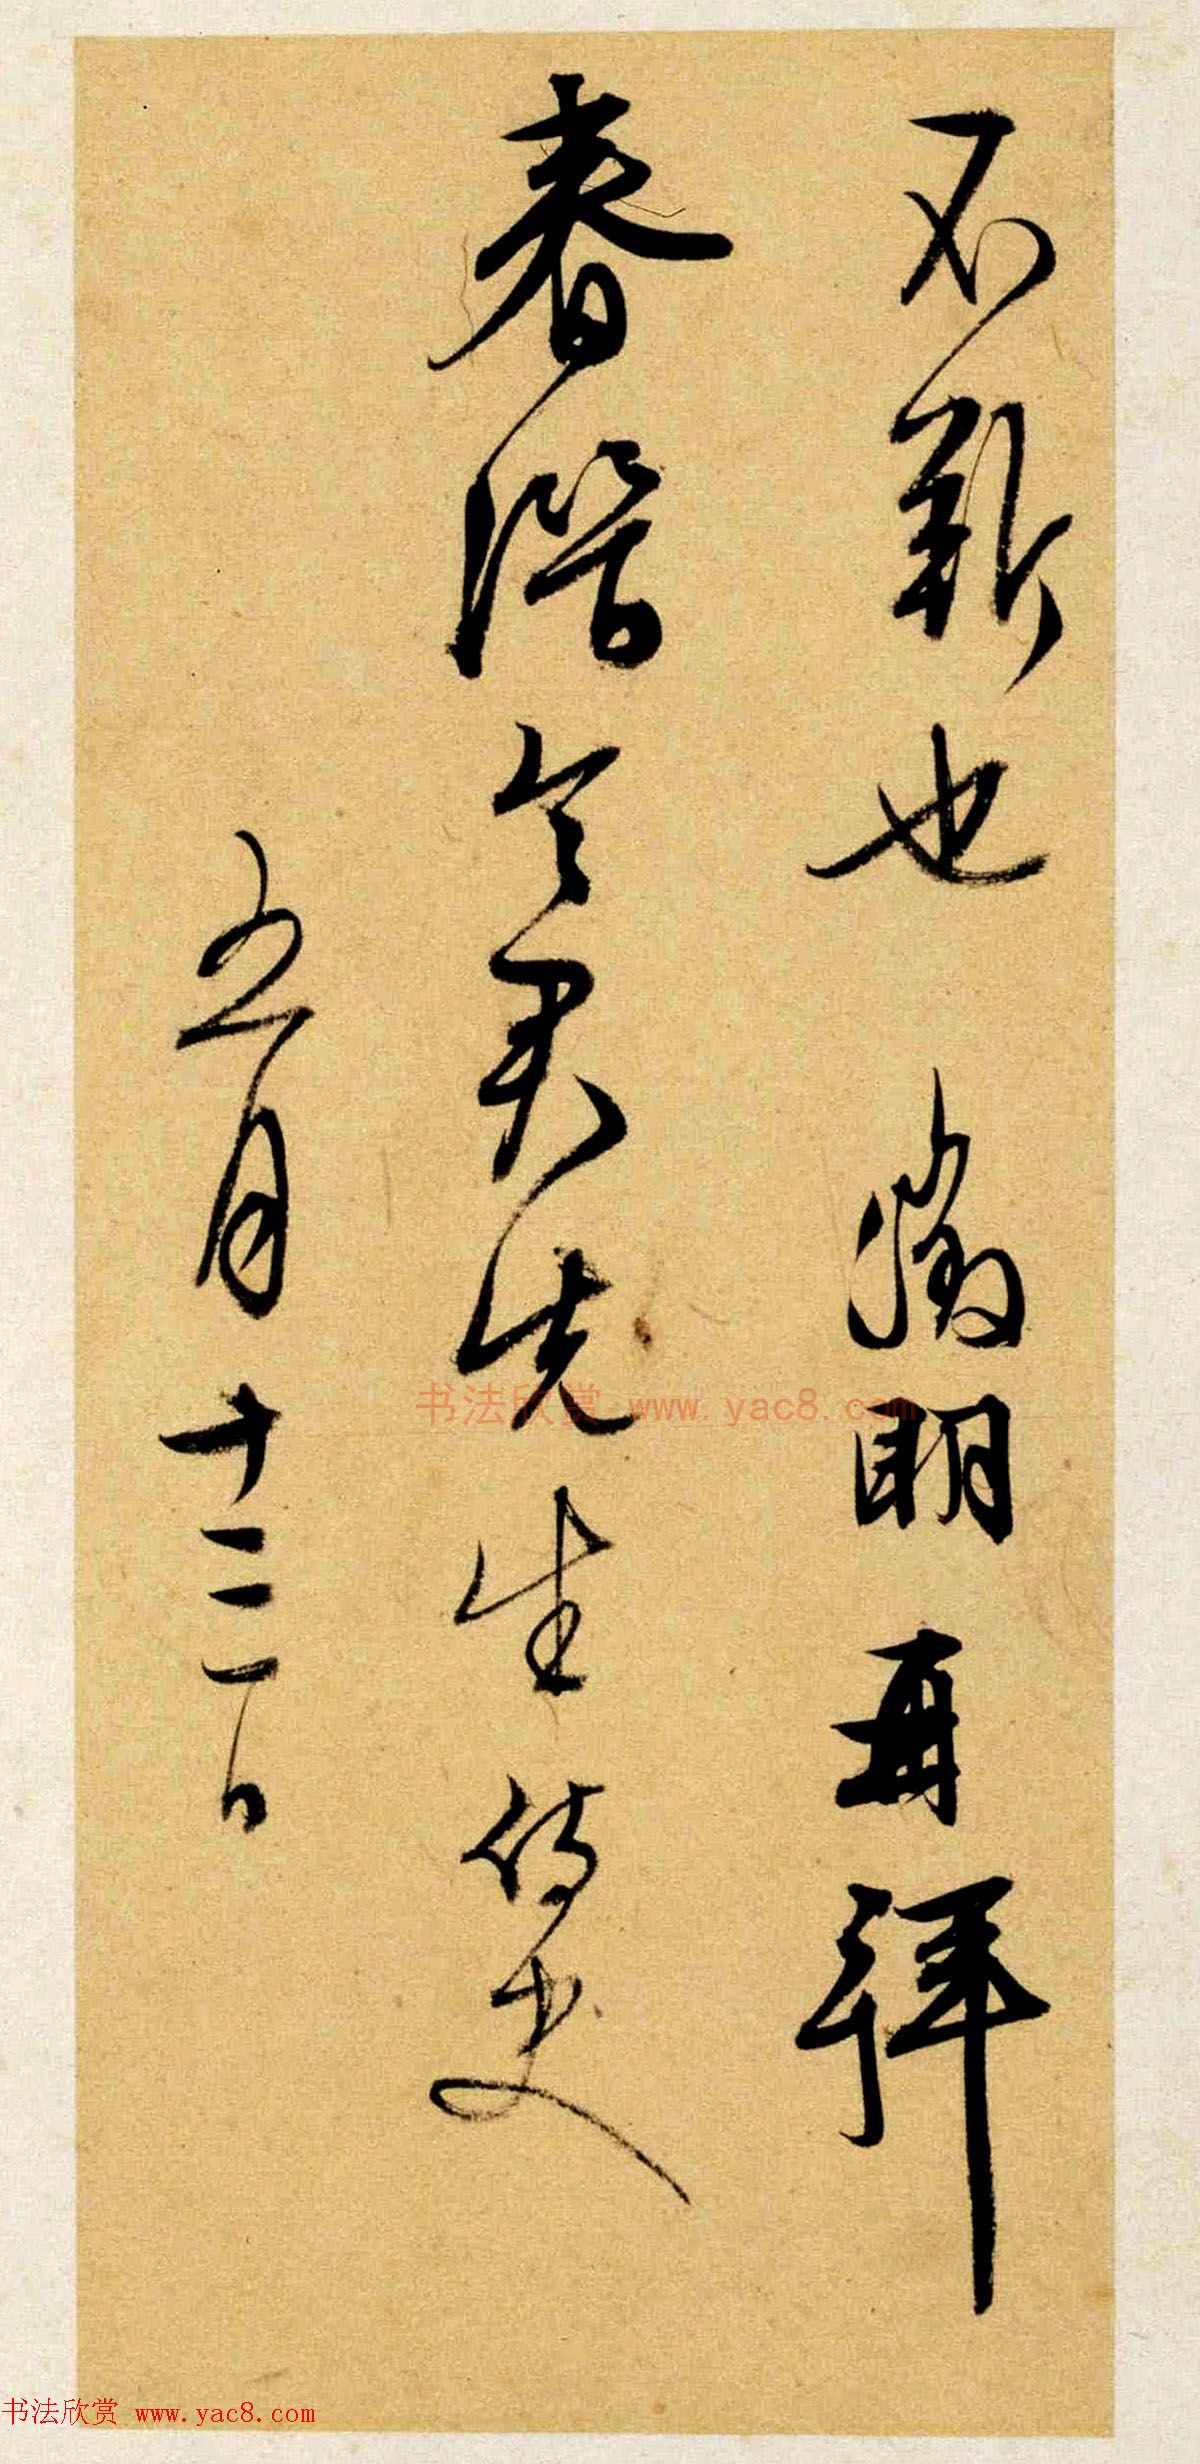 不靳也 徵明再拜
春潛令君先生侍史
五月十三日
书法欣赏 www.yac8.com
书法欣赏 www.yac8.com